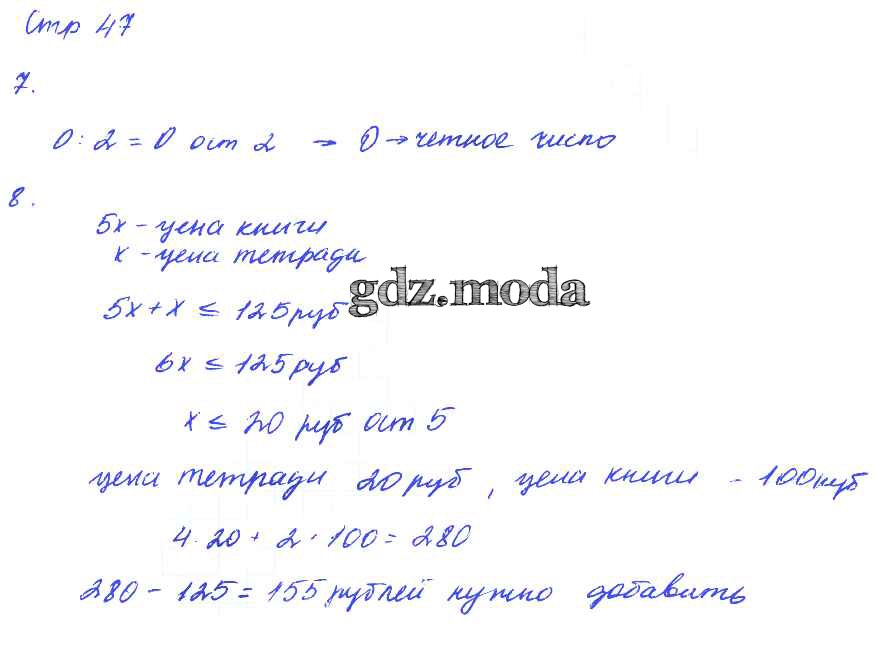 Стр 47
7.
0 : 2 = 0 ост 2 → 0 → четное число
8.
5x - цена книги
x - цена тетради
gdz.moda
5x + x ≤ 125 руб
6x ≤ 125 руб
x ≤ 20 руб ост 5
цена тетради 20 руб, цена книги - 100 руб
4 · 20 + 2 · 100 = 280
280 - 125 = 155 рублей нужно добавить